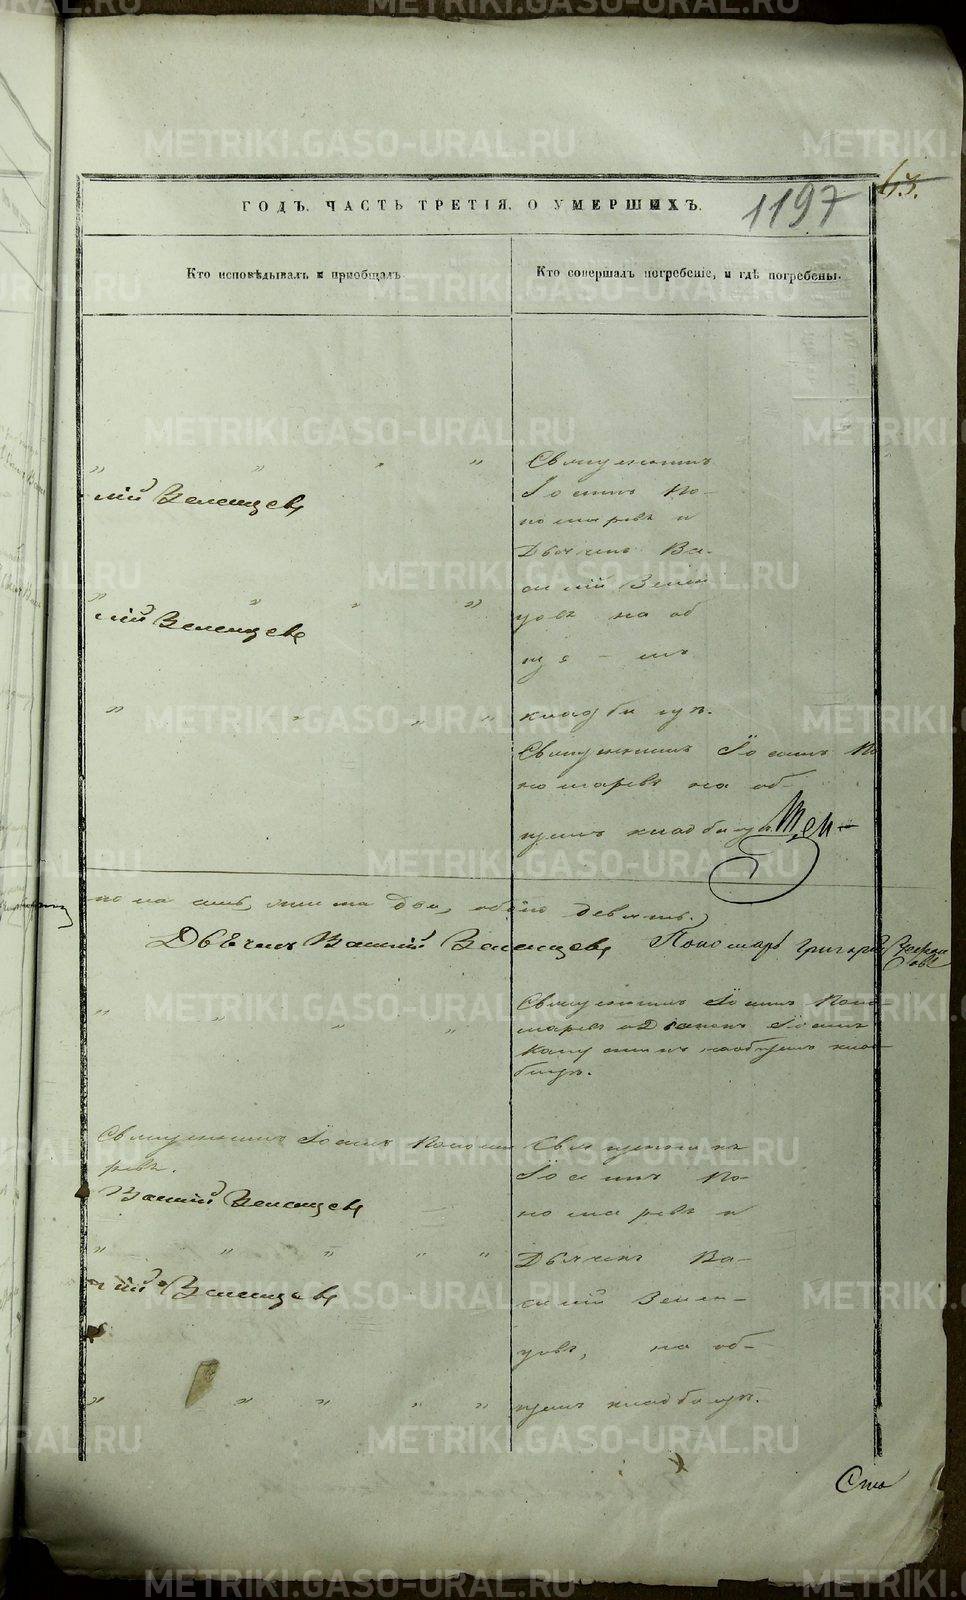 ГОДЪ. ЧАСТЬ ТРЕТІЯ. О УМЕРШИХЪ.
1197
Кто исповѣдывалъ и приобщалъ.
Кто совершалъ погребеніе, и гдѣ погребены.
Священникъ
лій Зеленцовъ
Іоаннъ По-
номаревъ и
Дьячекъ Ва-
силій Зелен
лій Зеленцовъ
цовъ на об
кладбищѣ.
Священникъ Іоаннъ По
номаревъ на об-
щемъ кладбищѣ.
девять.
Дьячекъ Василій Зеленцовъ Пономарь Григорій
Священникъ Іоаннъ Поно
маревъ и Дьяконъ Іоаннъ
на общемъ клад
бищѣ.
Священникъ Іоаннъ Понома
ревъ.
Василій Зеленцовъ
Священникъ
Іоаннъ По-
номаревъ и
Дьячекъ Ва-
силій Зелен-
цовъ, на об-
щемъ кладбищѣ.
лій Зеленцовъ
METRIKI.GASO-URAL.RU